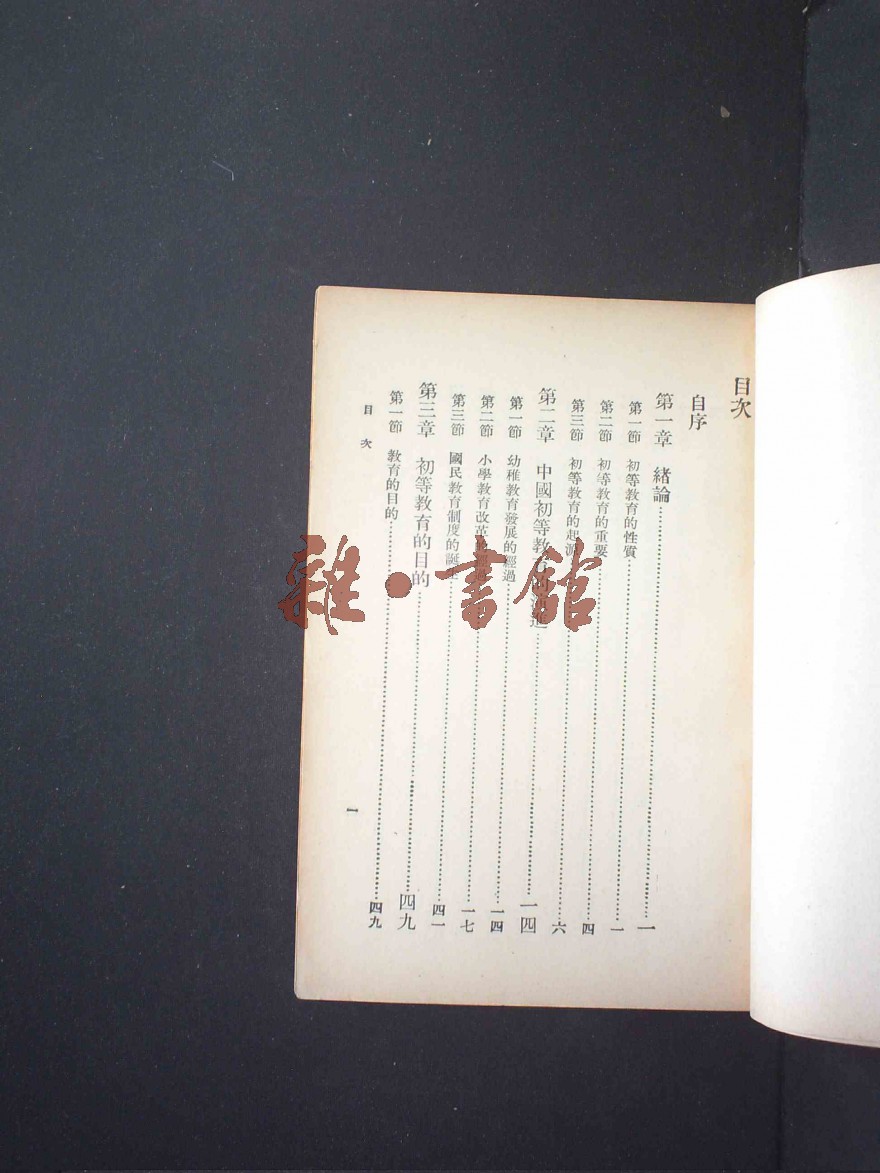 目次
自序
第一章 緒論……一
第一節 初等教育的性質……一
第二節 初等教育的重要……四
第三節 初等教育的起源……六
第二章 中國初等教育的演進……一四
第一節 幼稚教育發展的經過……一四
第二節 小學教育改革的經過……一七
第三節 國民教育制度的誕生……四一
第三章 初等教育的目的……四九
第一節 教育的目的……四九
目次
一
雜·書館